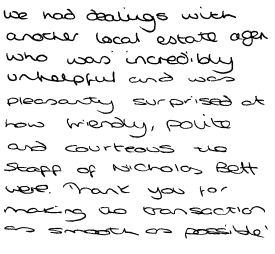 we had dealings with
another local estate agen
who was incredibly
unhelpful and was
pleasantly surprised at
how friendly, polite
and courteous the
staff of Nicholas Bett
were. Thank you for
making the transaction
as smooth as possible'